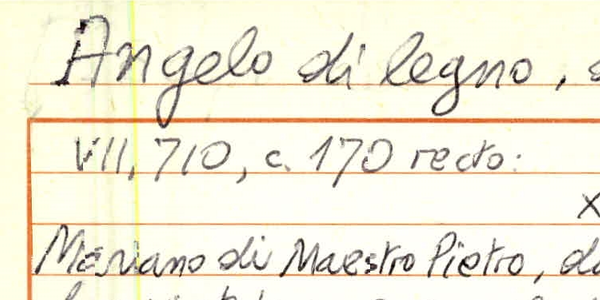 Angelo di legno,
VII, 710, c. 170 recto:
x
Mariano di Maestro Pietro,